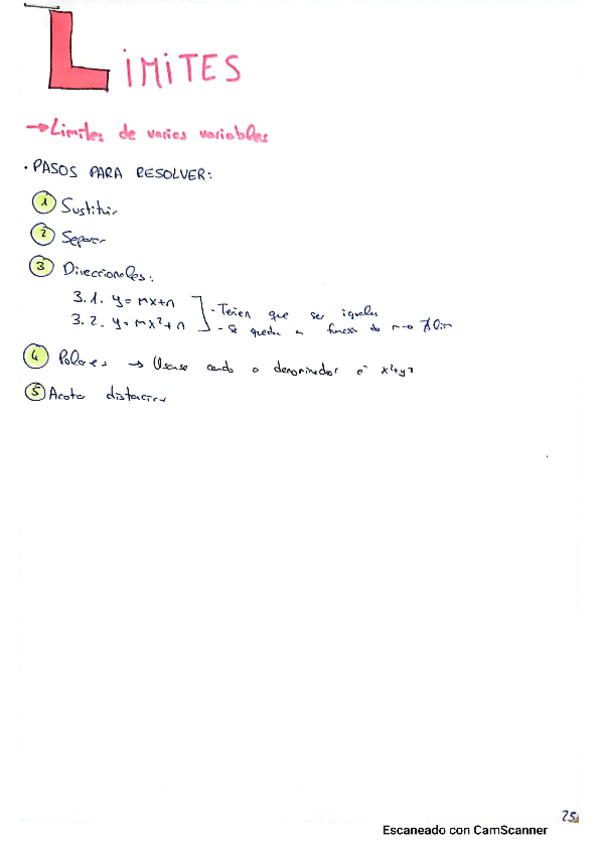 LIMITES
→ Limites de varias variables
· PASOS PARA RESOLVER:
1 Sustituir
2 Separar
3 Direccionales:
3.1. y = mx+n
3.2. y = mx²+n
- Teñen que ser iguales
- Se queda en función de m → ∄ lim
4 Polares → Usase cando o denominador é x²+y²
5 Acotar distancias
25
Escaneado con CamScanner